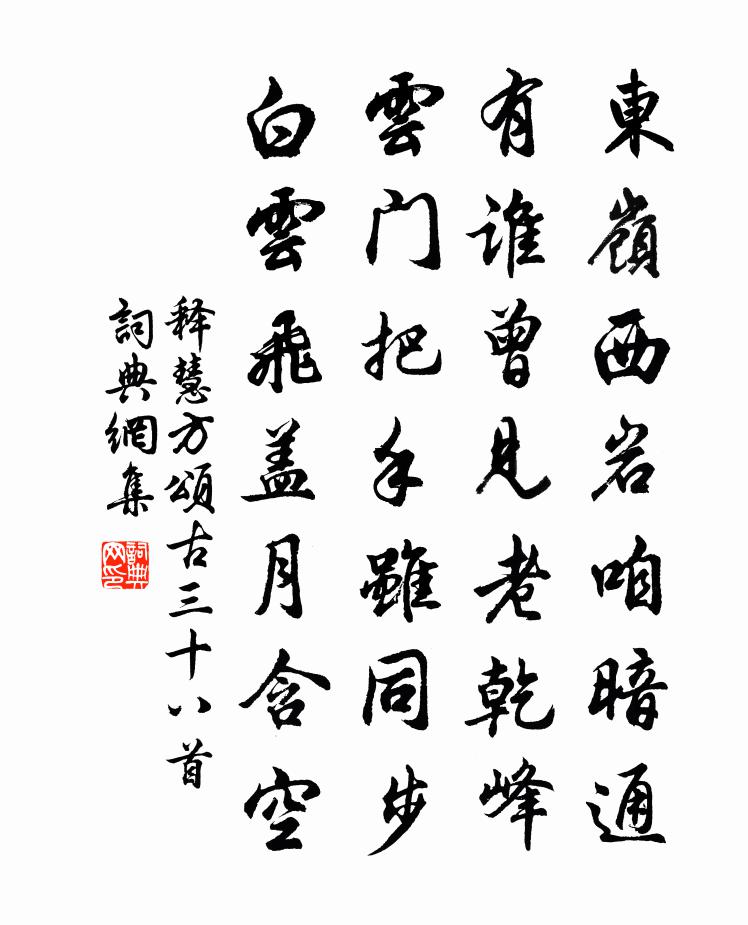 東嶺西岩咱暗通
有誰曾見老乾峰
雲门把手雖同步
白雲飛盖月含空
释慧方頌古三十八首
詞典網集
詞典网印